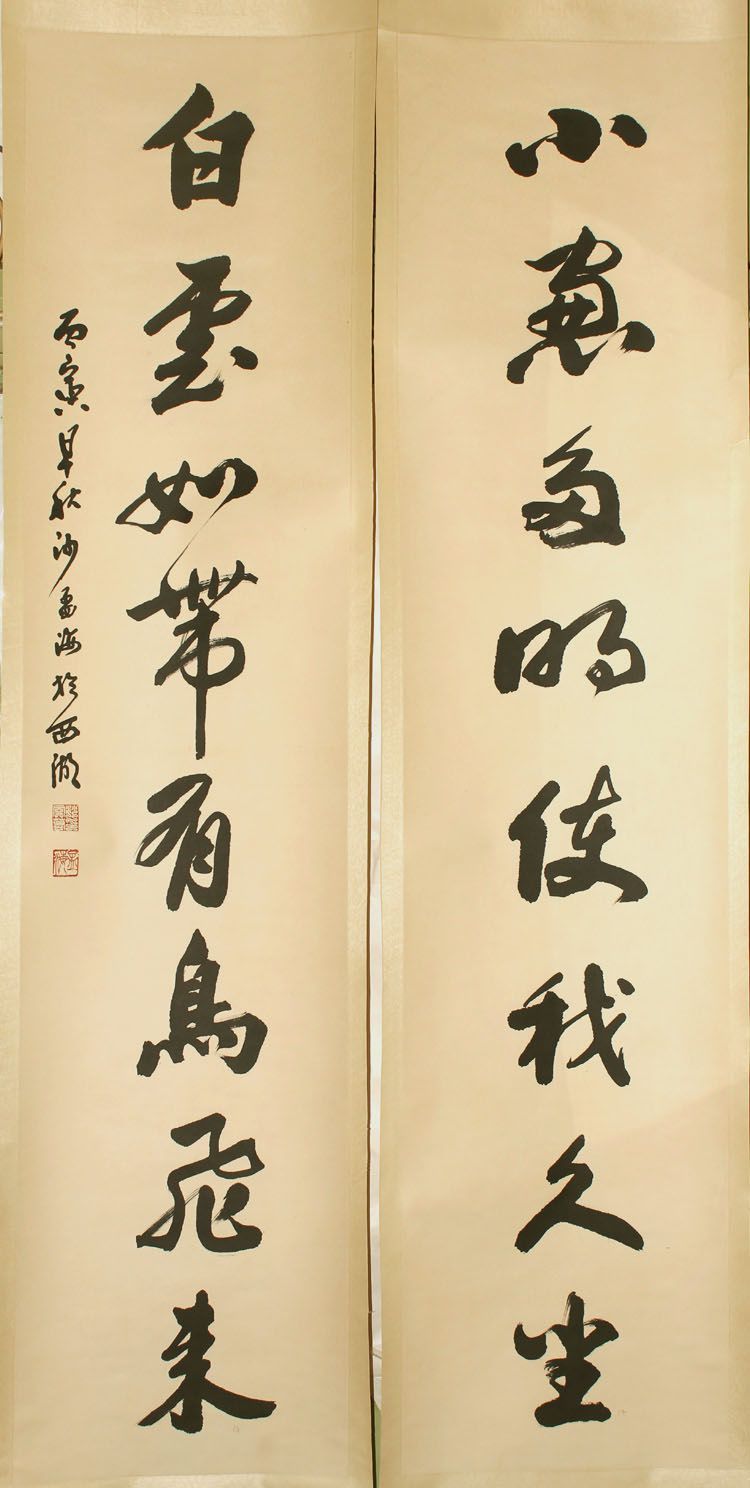 小窻多明使我久坐
白雲如帶有鳥飛來
丙寅早秋沙孟海於西湖